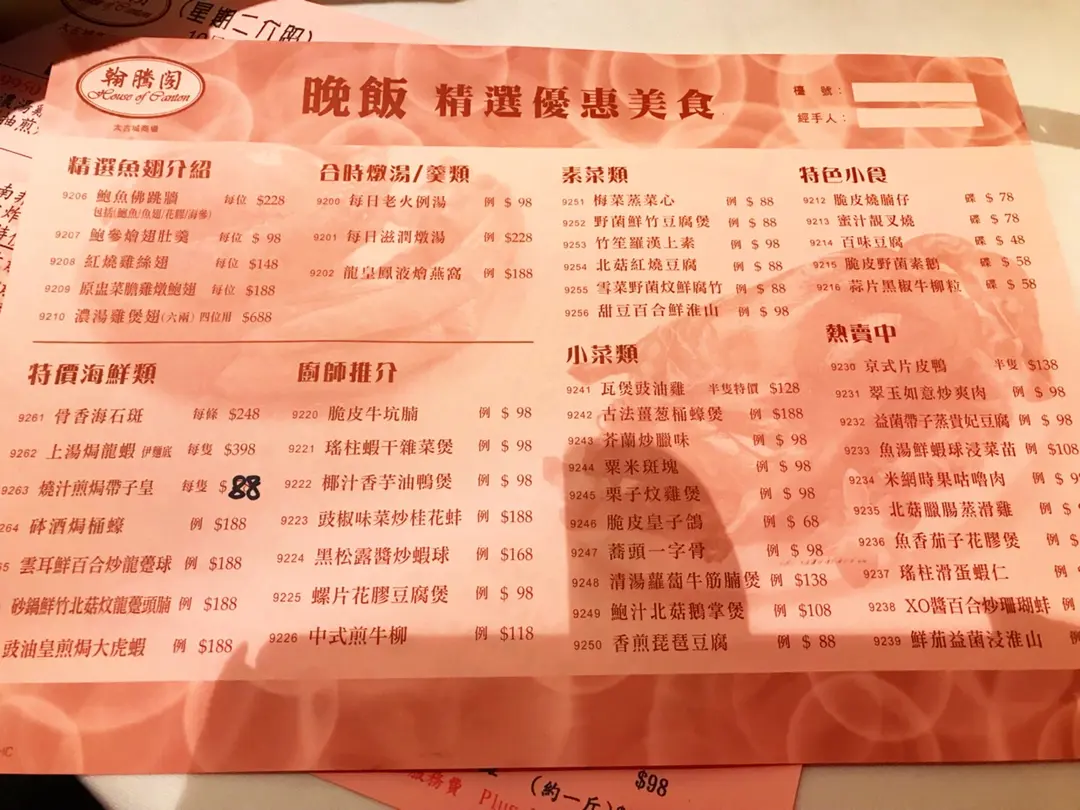 (星期二休假)
翰騰閣
House of Canton
太古城商場
晚飯 精選優惠美食
檯 號：
經手人：
精選魚翅介紹
9206 鮑魚佛跳牆 每位 $228
包括(鮑魚/魚翅/花膠/海參)
9207 鮑參燴翅肚羹 每位 $ 98
9208 紅燒雞絲翅 每位 $148
9209 原盅菜膽雞燉鮑翅 每位 $188
9210 濃湯雞煲翅(六兩) 四位用 $688
合時燉湯/羹類
9200 每日老火例湯 例 $ 98
9201 每日滋潤燉湯 例 $228
9202 龍皇鳳液燴燕窩 例 $188
素菜類
9251 梅菜蒸菜心 例 $ 88
9252 野菌鮮竹豆腐煲 例 $ 88
9253 竹笙羅漢上素 例 $ 98
9254 北菇紅燒豆腐 例 $ 88
9255 雪菜野菌炆鮮腐竹 例 $ 88
9256 甜豆百合鮮淮山 例 $ 98
特色小食
9212 脆皮燒腩仔 碟 $ 78
9213 蜜汁靚叉燒 碟 $ 78
9214 百味豆腐 碟 $ 48
9215 脆皮野菌素鵝 碟 $ 58
9216 蒜片黑椒牛柳粒 碟 $ 58
特價海鮮類
9261 骨香海石斑 每條 $248
9262 上湯焗龍蝦 伊麵底 每隻 $398
9263 燒汁煎焗帶子皇 每隻 $88
264 砵酒焗桶蠔 例 $188
65 雲耳鮮百合炒龍躉球 例 $188
砂鍋鮮竹北菇炆龍躉頭腩 例 $188
豉油皇煎焗大虎蝦 例 $188
廚師推介
9220 脆皮牛坑腩 例 $ 98
9221 瑤柱蝦干雜菜煲 例 $ 98
9222 椰汁香芋油鴨煲 例 $ 98
9223 豉椒味菜炒桂花蚌 例 $188
9224 黑松露醬炒蝦球 例 $168
9225 螺片花膠豆腐煲 例 $ 98
9226 中式煎牛柳 例 $118
小菜類
9241 瓦煲豉油雞 半隻特價 $128
9242 古法薑葱桶蠔煲 例 $188
9243 芥蘭炒臘味 例 $ 98
9244 粟米斑塊 例 $ 98
9245 栗子炆雞煲 例 $ 98
9246 脆皮皇子鴿 例 $ 68
9247 蕎頭一字骨 例 $ 98
9248 清湯蘿蔔牛筋腩煲 例 $138
9249 鮑汁北菇鵝掌煲 例 $108
9250 香煎琵琶豆腐 例 $ 88
熱賣中
9230 京式片皮鴨 半隻 $138
9231 翠玉如意炒爽肉 例 $ 98
9232 益菌帶子蒸貴妃豆腐 例 $ 98
9233 魚湯鮮蝦球浸菜苗 例 $108
9234 米網時果咕嚕肉 例 $ 9
9235 北菇臘腸蒸滑雞 例 $
9236 魚香茄子花膠煲 例 $
9237 瑤柱滑蛋蝦仁 例
9238 XO醬百合炒珊瑚蚌 例
9239 鮮茄益菌浸淮山 例
服務費 Plus
(約一斤)
$98